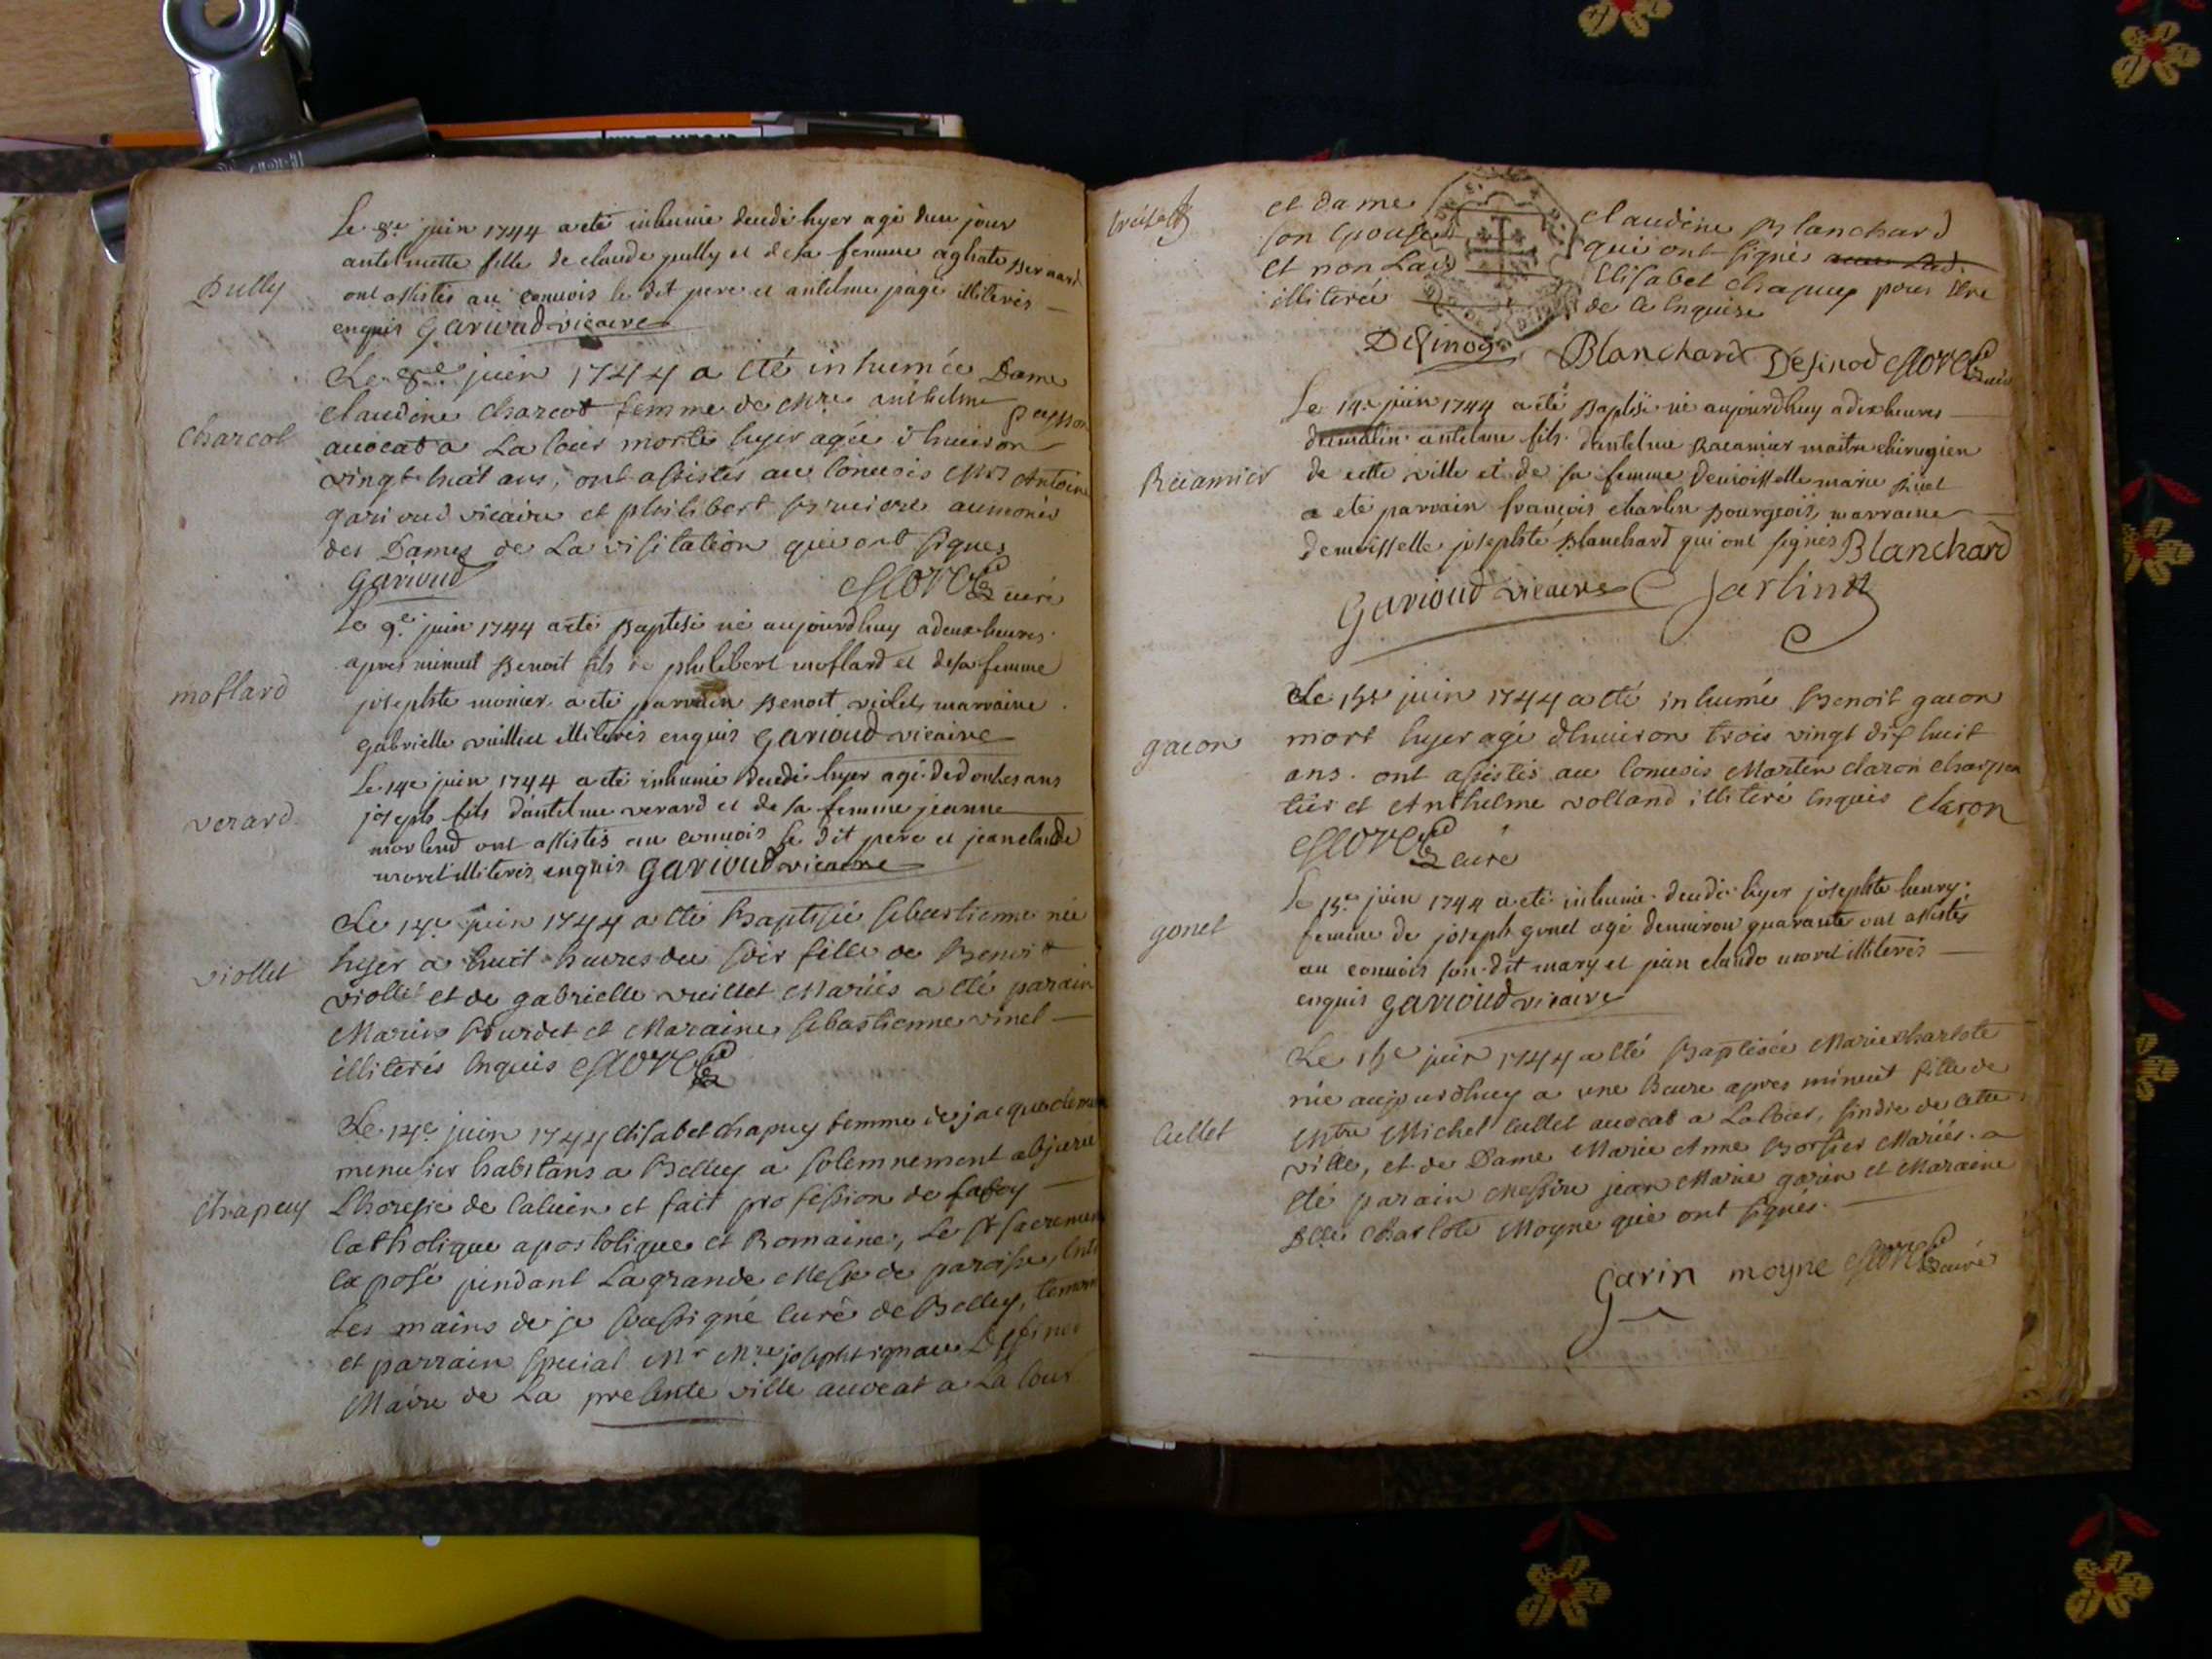 Pully
Le 8e juin 1744 a eté inhumée decedé hyer agé dun jour
antelmette fille de claude pully et de sa femme aghate Bernard
ont assistés au convois le dit pere et antelme page illiterés
enquis Garioud vicaire
charcot
Le 8e juin 1744 a eté inhumée Dame
claudine charcot femme de Mre anthelme
avocat a La Cour morte hyer agée d'huiron
vingt huit ans, ont assistés au Convois Mrs Antoine
garioud vicaire et philibert Bruiere aumonié
des Dames de La visitation qui ont signes
garioud curé
moflard
Le 9e juin 1744 a eté Baptisé né aujourdhuy a deux heures
apres minuit Benoit fils de philibert moflard et de sa femme
josephte monier a eté parrain Benoit violet, marraine
gabrielle vuillet illiterés enquis garioud vicaire
verard
Le 14e juin 1744 a eté inhumé decedé hyer agé de dont les ans
joseph fils dantelme verard et de sa femme jeanne
morlend ont assistés au convois le dit pere et jean claude
morel illiterés enquis garioud vicaire
viollet
Le 14e juin 1744 a eté Baptisée sebastienne née
hyer a huit heures du soir fille de Benoit
viollet et de gabrielle vuillet Mariés a eté parain
Marin Bourdet et Maraine sebastienne vinet
illiterés Enquis
chapuy
Le 14e juin 1744 elisabet chapuy femme de jacque
menusier habitans a Belley a solemnement abjuré
Lheresie de Calvin et fait profession de la foy
Catholique apostolique et Romaine, Le St sacrement
Exposé pendant La grande Messe de paroisse, Entre
Les mains de je soussigné curé de Belley, temoin
et parrain special Mr Mre joseph ignace Desinod
Maire de La presente ville avocat a La Cour
et dame claudine Blanchard
son Epouse qui ont signés
et non Lad Elisabet chapuy pour Etre
illiterée de ce Enquise
Desinod Blanchard Desinod
Recamier
Le 14e juin 1744 a eté Baptisé né aujourdhuy a dix heures
du matin antelme fils dantelme Racamier maitre chirugien
de cette ville et de sa femme demoisselle marie
a eté parrain françois charlin Bourgeois, marraine
demoisselle josephté Blanchard qui ont signés Blanchard
Garioud vicaire Charlin
gacon
Le 15e juin 1744 a eté inhumé Benoit gacon
mort hyer agé d'huiron trois vingt dix huit
ans. ont assistés au Convois Martin claron charpen
tier et Anthelme volland illiteré Enquis claron
curé
gonet
Le 15e juin 1744 a eté inhumé decedé hyer josephte henry
femme de joseph gonet agé denviron quarante ont assistés
au convois son dit mary et jean claude morel illiterés
enquis garioud vicaire
Cullet
Le 15e juin 1744 a eté Baptisée Marie charlote
née aujourdhuy a une heure apres minuit fille de
Mtre Michel Cullet avocat a La Cour, sindic de cette
ville, et de Dame Marie Anne Mariés. a
eté parain Messire jean Marie garin et Maraine
Dlle charlote Moyne qui ont signés.
garin moyne curé